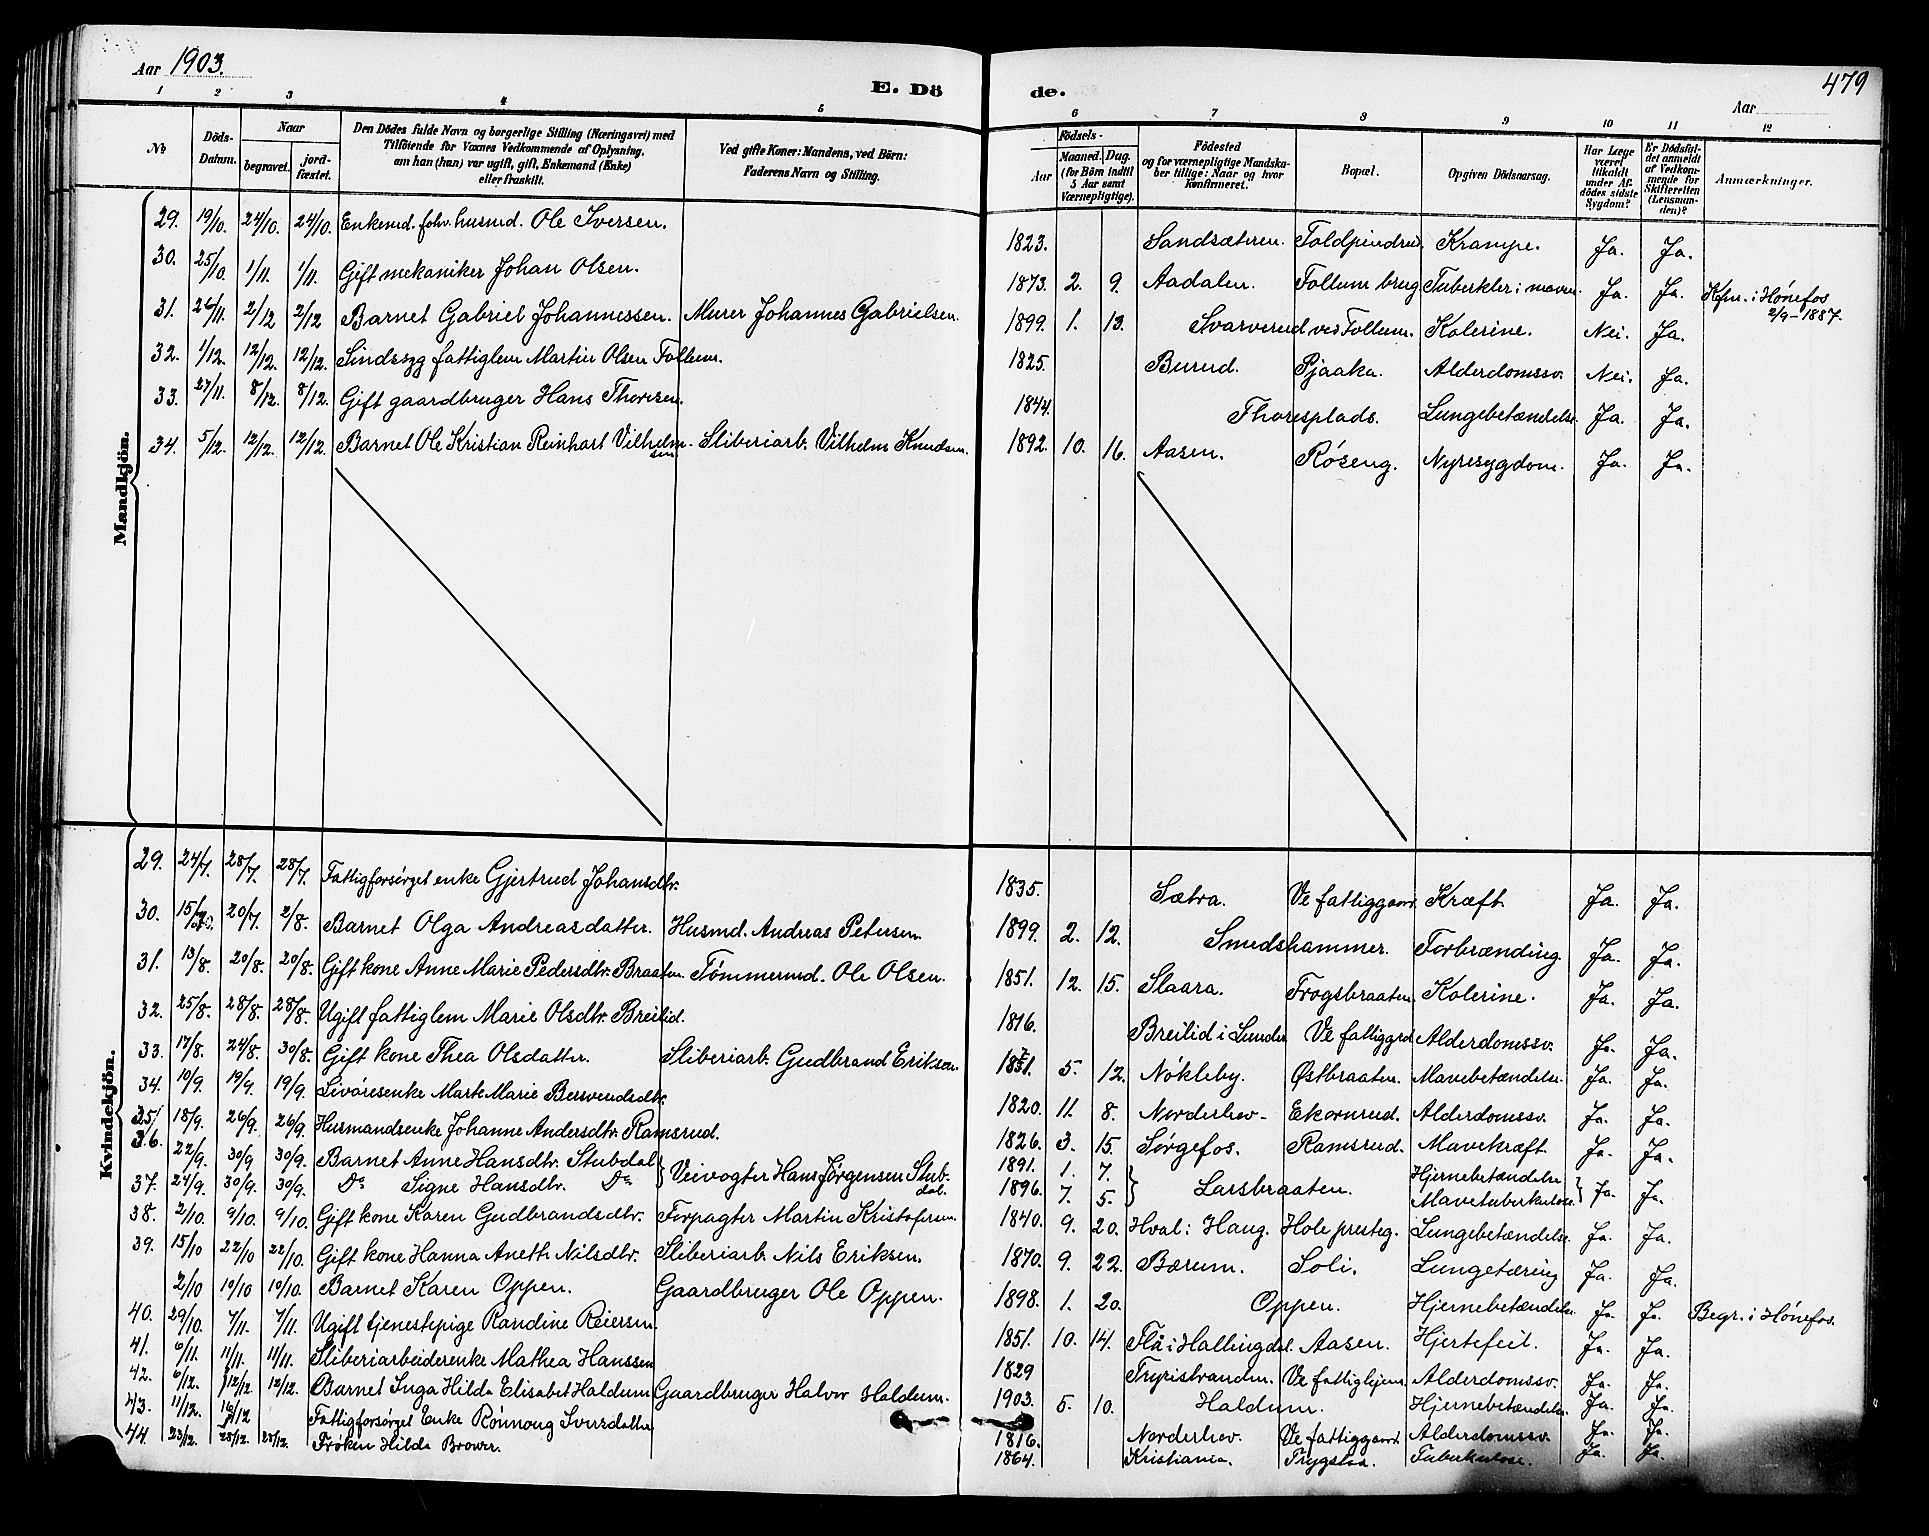 Aar 1903.
E. Dö
de.
479
Aar
1 2 3 4 5 6 7 8 9 10 11 12
No
Döds-Datum.
Naar
begravet.
jord-fæstet.
Den Dödes fulde Navn og borgerlige Stilling (Næringsvei) med
Tilföiende for Voxnes Vedkommende af Oplysning,
om han (hun) var ugift, gift, Enkemand (Enke)
eller fraskilt.
Ved gifte Koner: Mandens, ved Börn:
Faderens Navn og Stilling.
Födsels-
Aar
Maaned. Dag.
(for Börn indtil
5 Aar samt
Værnepligtige).
Födested
og for værnepligtige Mandska-
ber tillige: Naar og hvor
Konfirmeret.
Bopæl.
Opgiven Dödsaarsag.
Har Læge
været
tilkaldt
under Af-
dödes sidste
Sygdom?
Er Dödsfal-
det anmeldt
af Vedkom-
mende for
Skifteretten
(Lensman-
den)?
Anmærkninger.
Mandkjön.
29. 19/10. 24/10. 24/10. Enkemd. fohv. husmd. Ole Iversen. 1823. Sandsæteren. Foldpindrud Krampe. Ja. Ja.
30. 25/10. 1/11. 1/11. Gift mekaniker Johan Olsen. 1873. 2. 9. Aadalen. Follum brug Tuberkler i maven. Ja. Ja. Kfm. i Hönefos 2/9-1887.
31. 26/11. 2/12 2/12 Barnet Gabriel Johannessen. Murer Johannes Gabrielsen. 1899. 1. 13. Svarverud ved Follum. Kolerine. Nei. Ja.
32. 1/12. 12/12. 12/12. Sindssyg fattiglem Martin Olsen Follum. 1825. Burud. Pjaaka. Alderdomssv. Nei. Ja.
33. 27/11. 8/12. 8/12. Gift gaardbruger Hans Thoresen. 1844. Thoresplads. Lungebetændelse. Ja. Ja.
34. 5/12. 12/12. 12/12. Barnet Ole Kristian Reinhart Vilhelmsen. Sliberiarb. Vilhelm Knudsen. 1892. 10. 16. Aasen. Røseng. Nyresygdom. Ja. Ja.
Kvindekjön.
29. 24/7. 28/7. 28/7. Fattigforsörget enke Gjertrud Johansdtr. 1835. Sætra. Ve fattiggaard. Kræft. Ja. Ja.
30. 15/7. 20/7. 2/8. Barnet Olga Andreasdatter. Husmd. Andreas Petersen. 1899. 2. 12. Smedshammer. Forbrænding Ja. Ja.
31. 13/8. 20/8. 20/8. Gift kone Anne Marie Pedersdtr. Braaten. Tømmermd. Ole Olsen. 1851. 12. 15. Slaara. Frogsbraaten. Kolerine. Ja. Ja.
32. 25/8. 28/8. 28/8. Ugift fattiglem Marie Olsdtr. Breilid. 1816. Breilid i Lunder Ve fattiggrd Alderdomssv. Ja. Ja.
33. 17/8. 24/8. 30/8. Gift kone Thea Olsdatter. Sliberiarb. Gudbrand Eriksen. 5. 12. Nökleby. Østbraaten. Mavebetændelse. Ja. Ja.
34. 10/9. 19/9. 19/9. Livöresenke Marte Marie Bervendsdtr. 1820. 11. 8. Norderhov. Ekornrud. Alderdomssv. Ja. Ja.
35. 18/9. 26/9. 26/9. Husmandsenke Johanne Andersdtr. Ramsrud. 1826. 3. 15. Sørgefos. Ramsrud. Mavekræft. Ja. Ja.
36. 22/9. 30/9 30/9. Barnet Anne Hansdtr. Stubdal } Veivogter Hans Jörgensen Stubdal. 1891. 1. 7. } Larsbraaten. Hjernebetændelse } Ja. Ja.
37. 24/9. 30/9. 30/9. Do Signe Hansdtr. Do 1896. 7. 5. Mavetuberkulose.
38. 2/10. 9/10. 9/10. Gift kone Karen Gudbrandsdtr. Forpagter Martin Kristofersen. 1840. 9. 20. Hval i Haug. Hole presteg. Lungebetændelse. Ja. Ja.
39. 15/10 22/10 22/10. Gift kone Hanna Aneth Nilsdtr. Sliberiarb. Nils Eriksen. 1870. 9. 22. Bærum. Soli. Lungetæring Ja. Ja.
2/10 10/10 10/10. Barnet Karen Oppen. Gaardbruger Ole Oppen. 1898. 1. 20. Oppen. Hjernebetændelse. Ja. Ja. Begr. i Hönefos.
40. 29/10. 7/11. 7/11. Ugift tjenestepige Randine Reiersen. 1851. 10. 14. Flå i Hallingdal. Aasen. Hjertefeil. Ja. Ja.
41. 6/11. 11/11. 11/11. Sliberiarbeiderenke Mathea Hanssen 1829 Tyristranden. Ve fattighjem. Alderdomssv. Ja. Ja.
42. 6/12. 12/12. 12/12. Barnet Inga Hilda Elisabet Haldum Gaardbruger Halvor Haldum. 1903. 5. 10. Haldum. Hjernebetændelse. Ja. Ja.
43. 11/12. 16/12 Fattigforsörget Enke Rönnoug Iversdatter 1816. Norderhov. Ve fattiggaard. Alderdomssv. Ja. Ja.
44. 23/12. 28/12. 28/12. Fröken Hilda Brower. 1864. Kristiania. Trygstad. Tuberkulose. Ja. Ja.